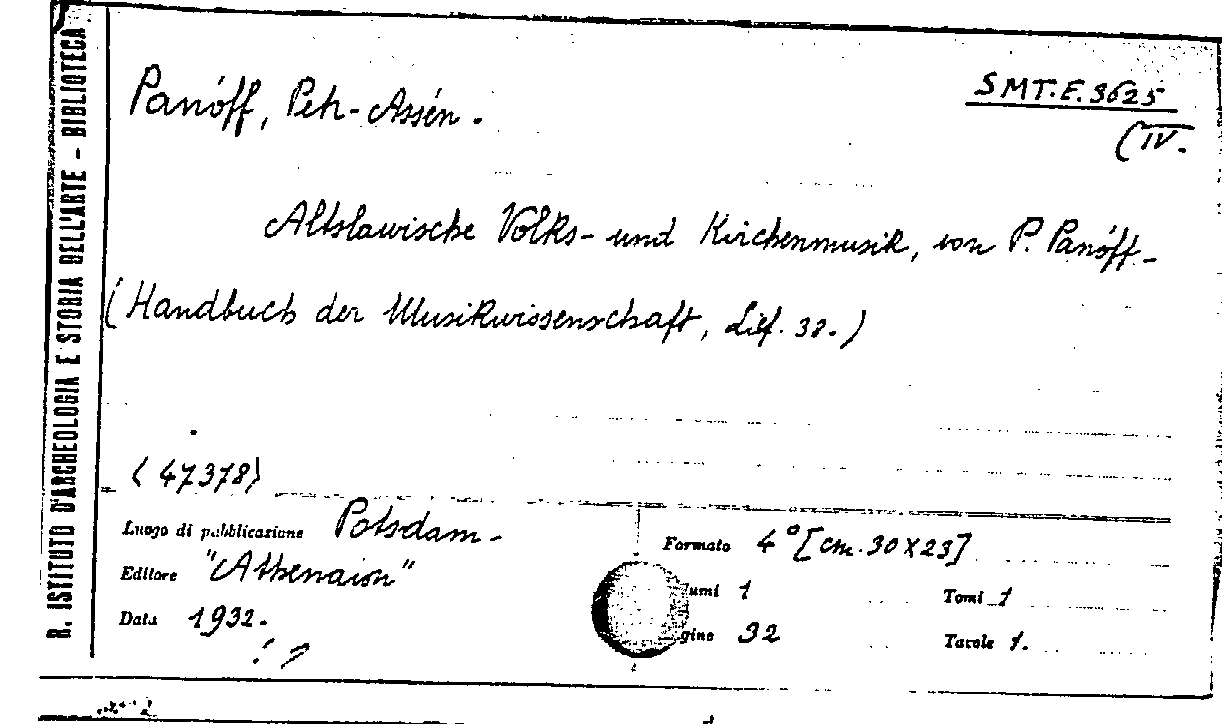 R. ISTITUTO D'ARCHEOLOGIA E STORIA DELL'ARTE - BIBLIOTECA
Panóff, Peh-Assén.
SMT.E.3625
(IV.
Altslawische Volks- und Kirchenmusik, von P. Panóff-
(Handbuch der Musikwissenschaft, Lief. 38.)
(47378)
Luogo di pubblicazione Potsdam-
Editore "Athenaion"
Data 1932.
Formato 4° [cm. 30X23]
umi 1 Tomi 1
gine 32 Tavole 1.